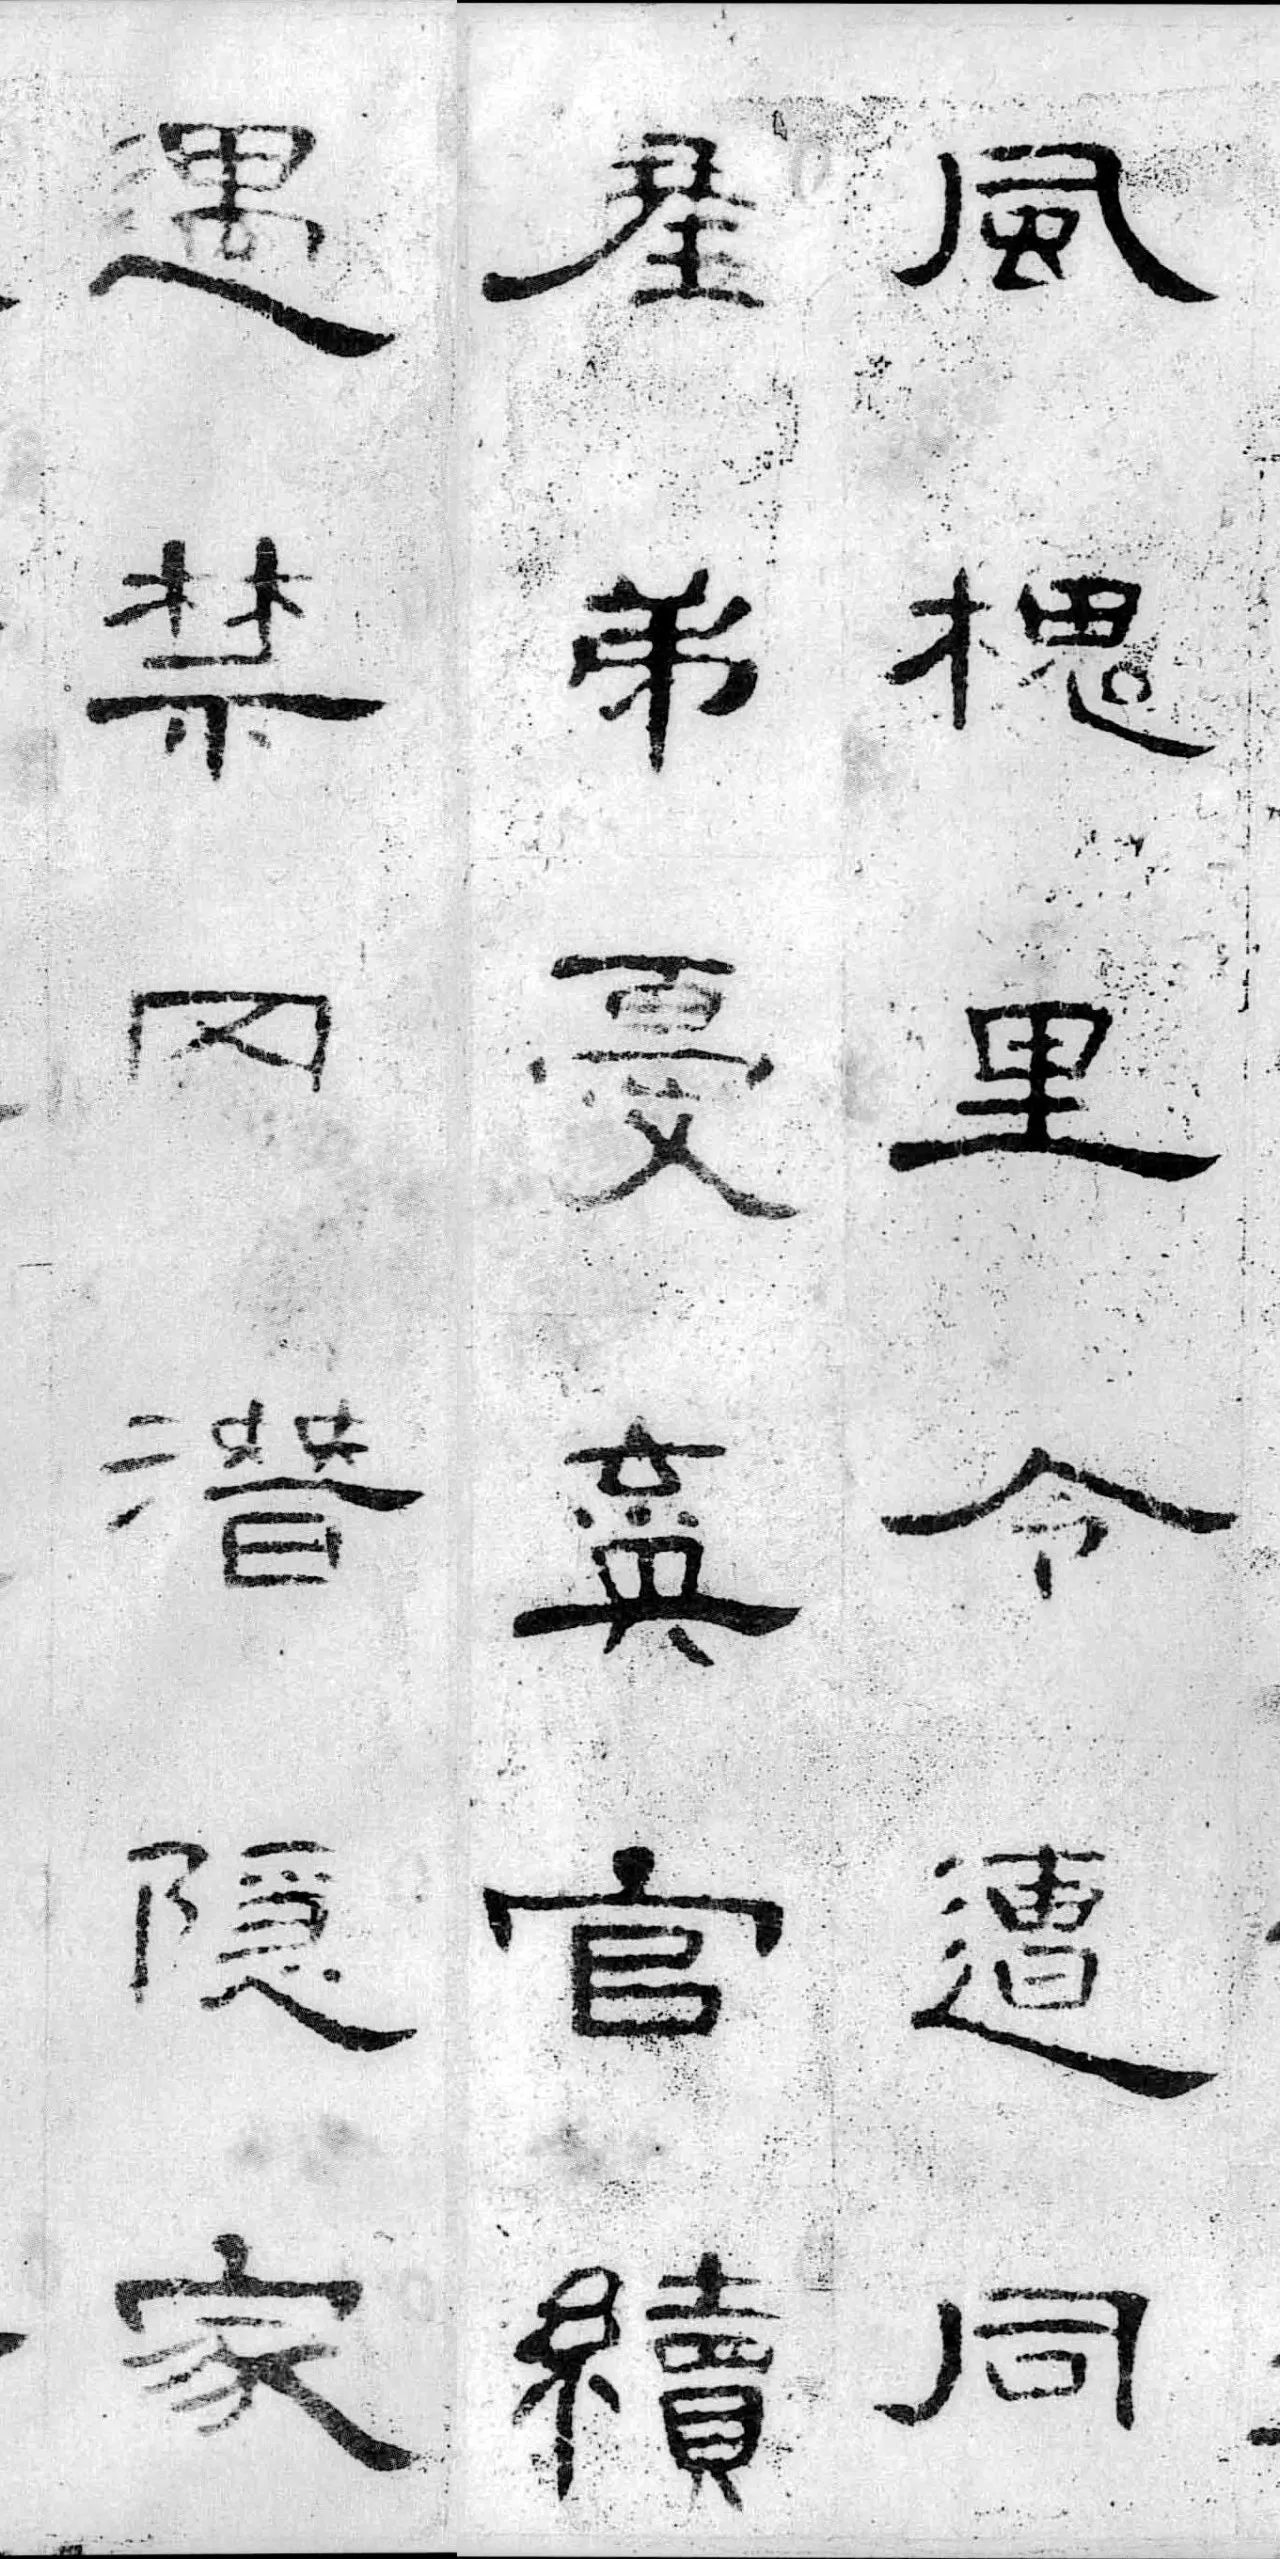 風槐里令遭同
産弟憂棄官續
遇禁冈潛隱家